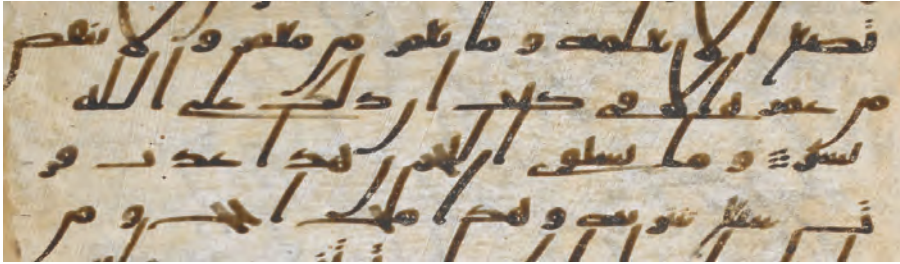 تضع الا بعلمه و ما يعمر من معمر و لا ينقص
من عمره الا في كتب ان ذلك على الله
يسير و ما يستوي البحرن هذا عذب فر
ت سيغ شربه و هذا ملح اجج و من